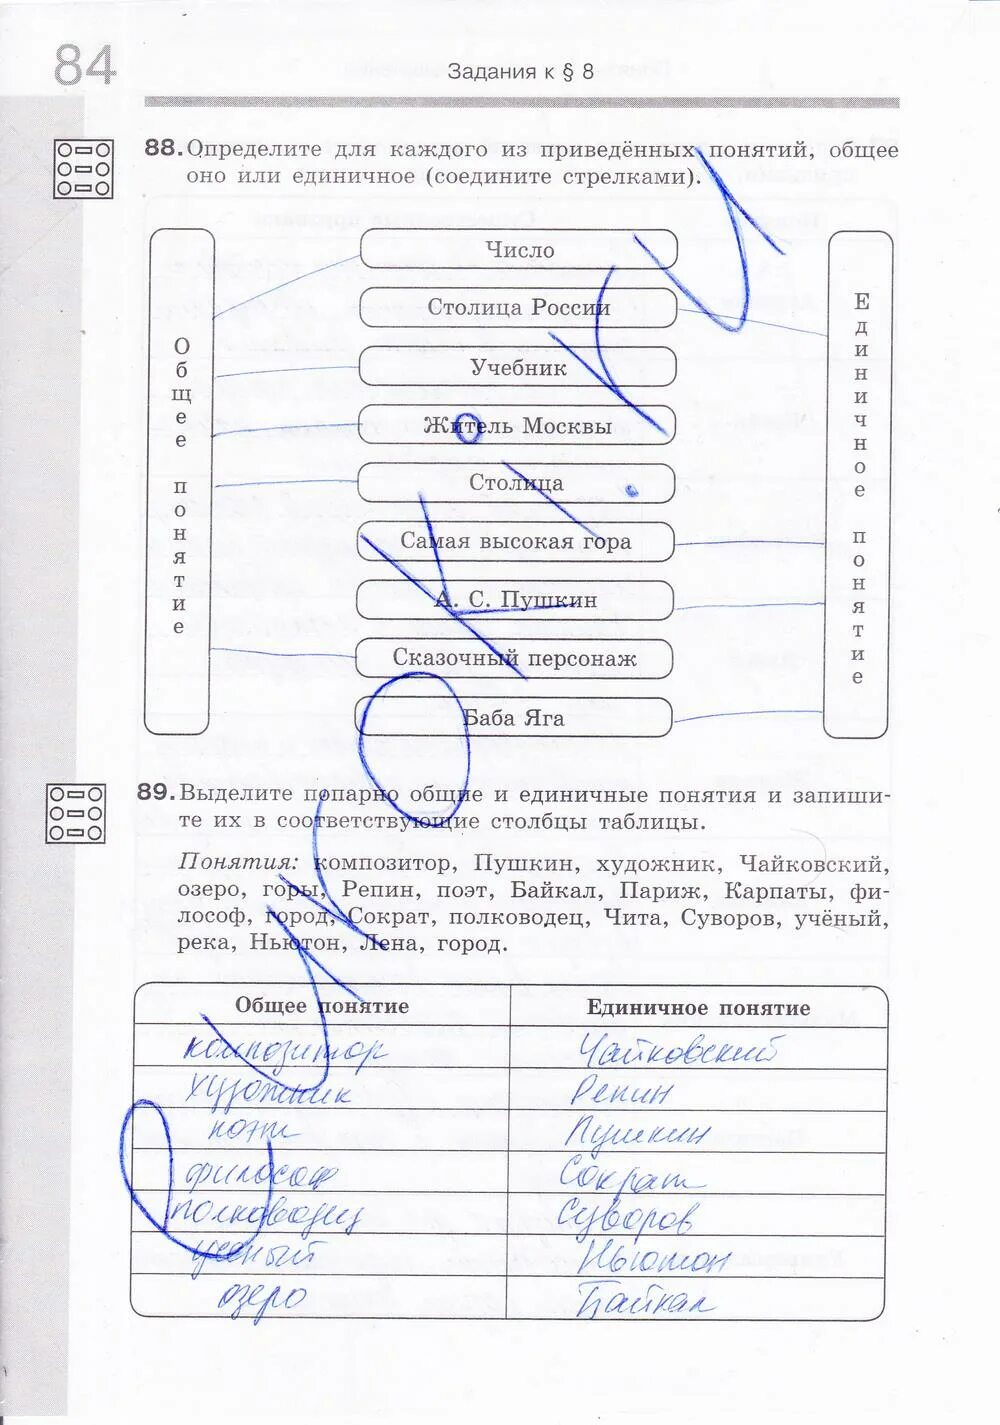 84
Задания к § 8
88. Определите для каждого из приведённых понятий, общее
оно или единичное (соедините стрелками).
Общее понятие
Число
Столица России
Учебник
Житель Москвы
Столица
Самая высокая гора
А. С. Пушкин
Сказочный персонаж
Баба Яга
Единичное понятие
89. Выделите попарно общие и единичные понятия и запиши-
те их в соответствующие столбцы таблицы.
Понятия: композитор, Пушкин, художник, Чайковский,
озеро, горы, Репин, поэт, Байкал, Париж, Карпаты, фи-
лософ, город, Сократ, полководец, Чита, Суворов, учёный,
река, Ньютон, Лена, город.
Общее понятие Единичное понятие
композитор Чайковский
художник Репин
поэт Пушкин
философ Сократ
полководец Суворов
ученый Ньютон
озеро Байкал